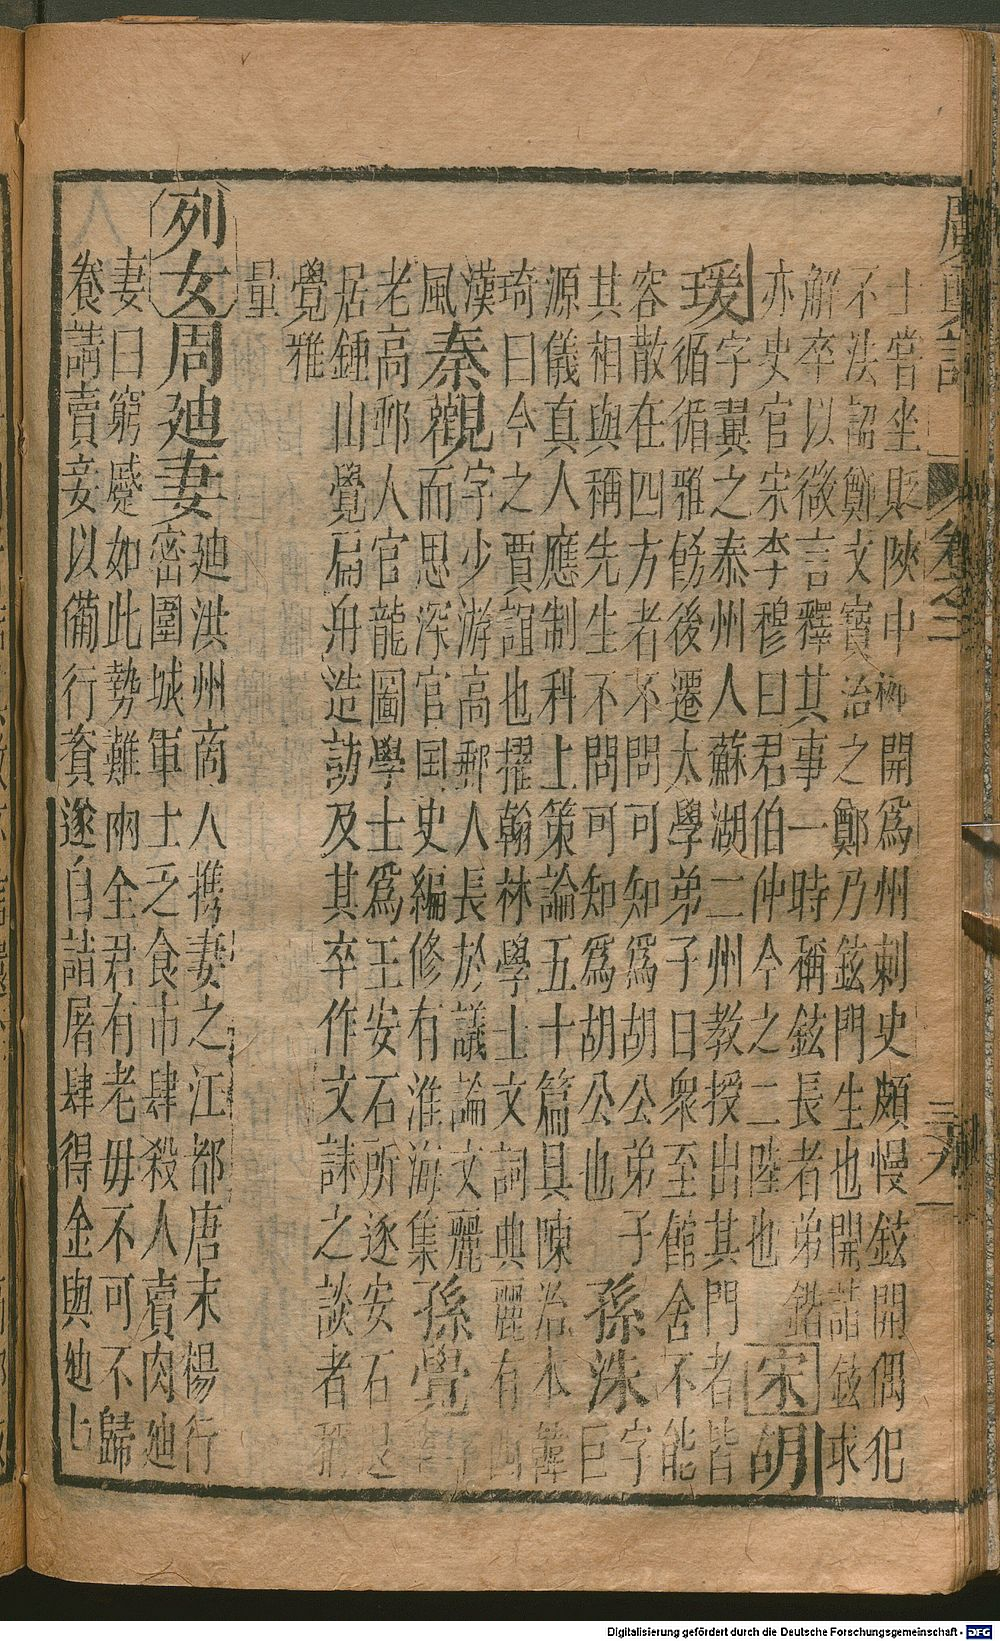 廣輿記 卷之 三九
士嘗坐貶陝中柳開爲州刺史頗慢鉉開偶犯
不法詔鄭文寶治之鄭乃鉉門生也開詣鉉求
解卒以微言釋其事一時稱鉉長者弟鍇
亦史官宋李穆曰君伯仲今之二陸也 宋 胡
瑗 字翼之泰州人蘇湖二州教授出其門者皆
循循雅飭後遷太學弟子日衆至館舍不能
容散在四方者不問可知爲胡公弟子
其相與稱先生不問可知爲胡公也 孫洙 字巨
源儀真人應制科上策論五十篇具陳治本韓
琦曰今之賈誼也擢翰林學士文詞典麗有西
漢風 秦觀 字少游高郵人長於議論文麗
而思深官国史編修有淮海集 孫覺 字莘
老高郵人官龍圖學士爲王安石所逐安石退
居鍾山覺扁舟造訪及其卒作文誄之談者稱
覺雅
量
列女 周廸妻 廸洪州商人携妻之江都唐末楊行
密圍城軍士乏食市肆殺人賣肉廸
妻曰窮蹙如此勢難兩全君有老毋不可不歸
養請賣妾以備行資遂自詣屠肆得金與廸七
Digitalisierung gefördert durch die Deutsche Forschungsgemeinschaft - DFG